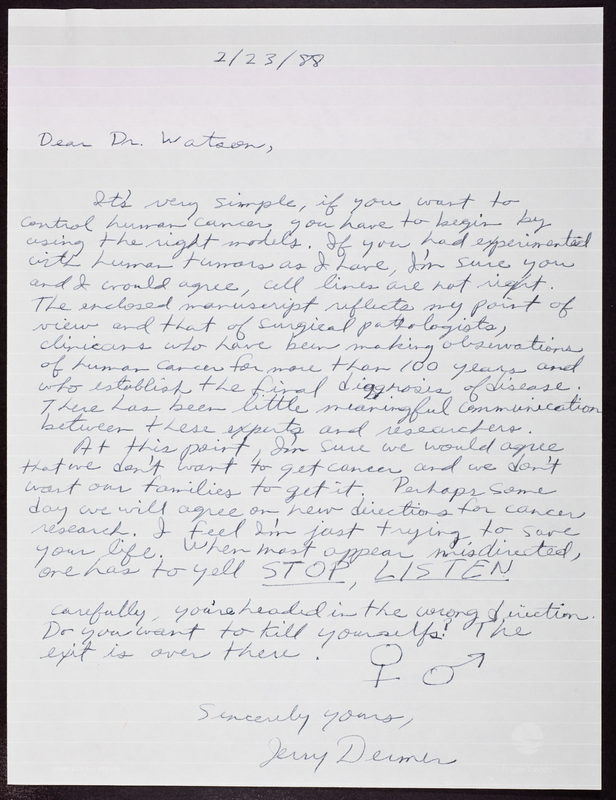 2/23/88
Dear Dr. Watson,
It's very simple, if you want to
control human cancer you have to begin by
using the right models. If you had experimented
with human tumors as I have, I'm sure you
and I would agree, cell lines are not right.
The enclosed manuscript reflects my point of
view and that of surgical pathologists,
clinicians who have been making observations
of human cancer for more than 100 years and
who establish the final diagnosis of disease.
There has been little meaningful communication
between these experts and researchers.
At this point, I'm sure we would agree
that we don't want to get cancer and we don't
want our families to get it. Perhaps some
day we will agree on new directions for cancer
research. I feel I'm just trying to save
your life. When most appear misdirected,
one has to yell STOP, LISTEN
carefully, you're headed in the wrong direction.
Do you want to kill yourselfs! The
exit is over there. ♀ ♂
Sincerely yours,
Jerry Dermer